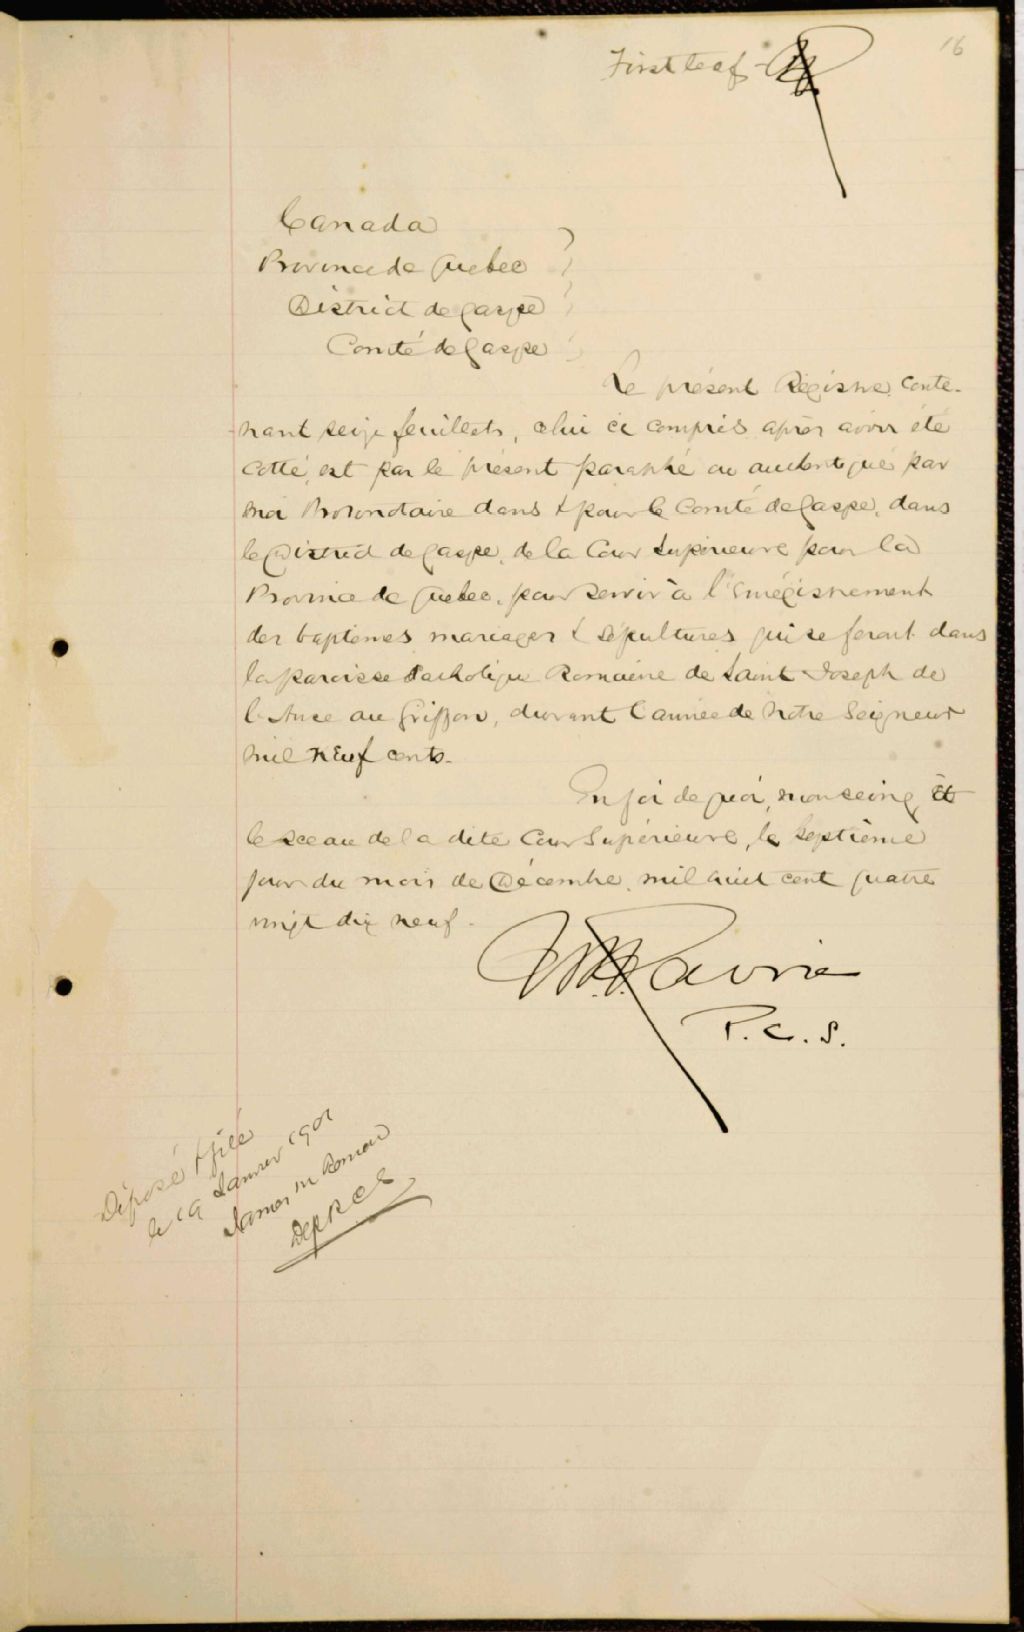 First leaf - 16
Canada
Province de Quebec
District de Gaspé
Comté de Gaspé
Le présent Régistre, conte-
nant seize feuillets, celui ci compris après avoir été
cotté, est par le présent paraphé ou authentiqué par
moi Protonotaire dans & pour le Comté de Gaspé, dans
le District de Gaspé, de la Cour Supérieure pour la
Province de Quebec, pour servir à l'Enrégistrement
des baptèmes mariages & sépultures qui se feront dans
la paroisse Catholique Romaine de Saint Joseph de
l'Anse au Griffon, durant l'année de Notre Seigneur
Mil Neuf cents.
En foi de quoi, mon seing, Et
le sceau de la dite Cour Supérieure, le Septième
jour du mois de Décembre, mil huit cent quatre
vingt dix neuf.
Lavoie
P. C. S.
Déposé & filé
le 19 Janvier 1901
James M Remon
Dep P C S